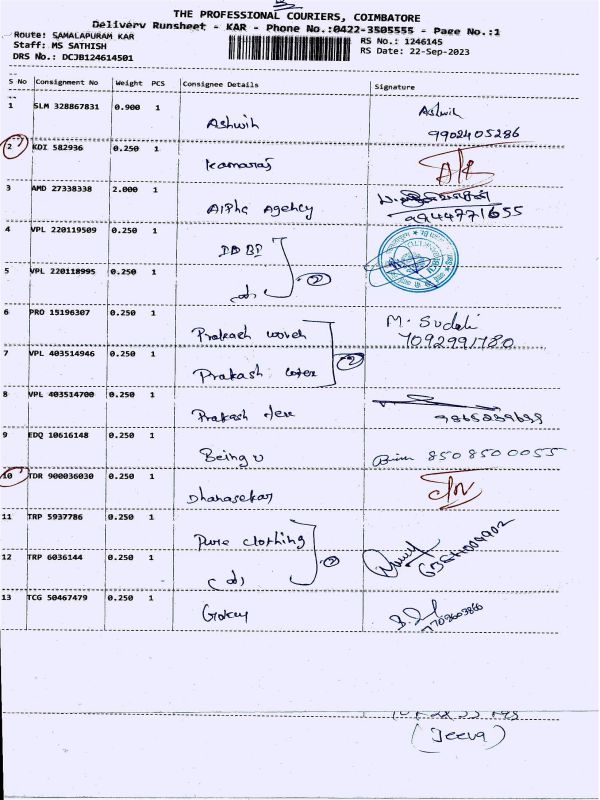 THE PROFESSIONAL COURIERS, COIMBATORE
Delivery Runsheet - KAR - Phone No.:0422-3505555 - Page No.:1
Route: SAMALAPURAM KAR
RS No.: 1246145
Staff: MS SATHISH
RS Date: 22-Sep-2023
DRS No.: DCJB124614501
S No Consignment No Weight PCS Consignee Details Signature
1 SLM 328867831 0.900 1 Ashwin Ashwin
9902405286
2 KDI 582936 0.250 1 Kamaraj
3 AMD 27338338 2.000 1 Alpha Agency
9944771655
4 VPL 220119509 0.250 1
5 VPL 220118995 0.250 1 do 2
6 PRO 15196307 0.250 1 Prakash M. Sudali
7092991780
7 VPL 403514946 0.250 1 Prakash 2
8 VPL 403514700 0.250 1 Prakash
9 EDQ 10616148 0.250 1 Being U 8508500055
10 TDR 900036030 0.250 1 Dhanasekar
11 TRP 5937786 0.250 1 Pure clothing
12 TRP 6036144 0.250 1 do 2
13 TCG 50467479 0.250 1
(Jeeva)